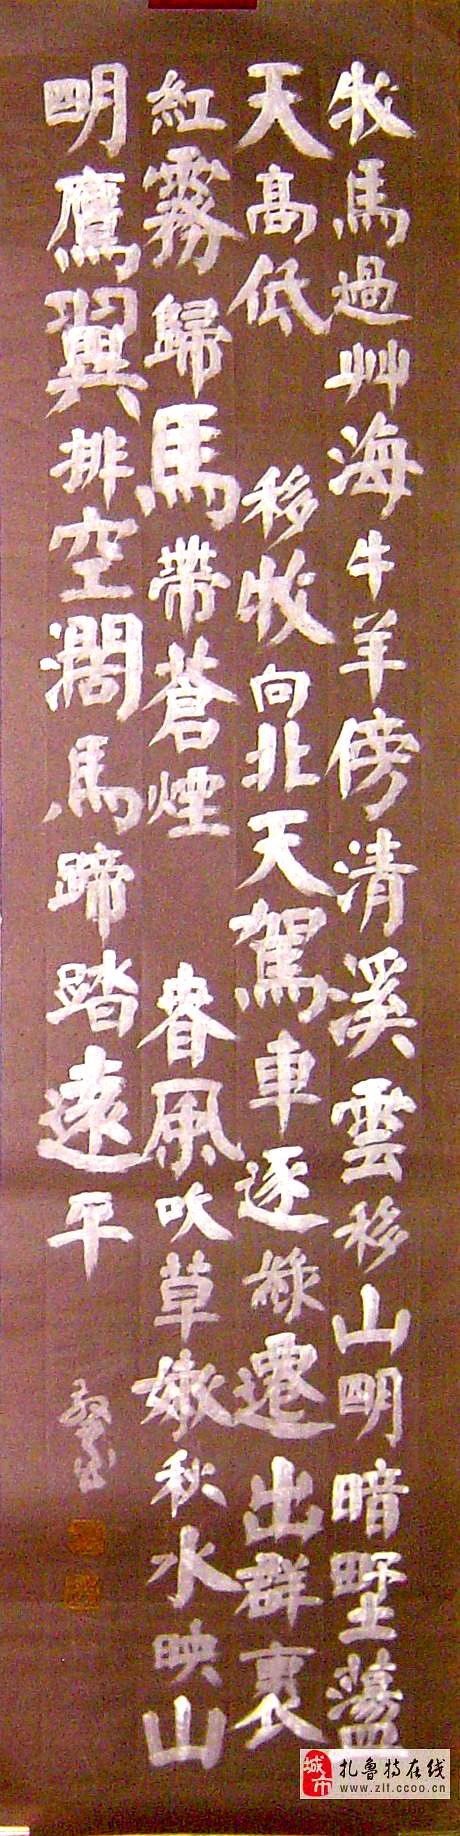 牧馬過艸海牛羊傍清溪雲移山明暗墅蘯
天高低 移牧向北天駕車逐綠遷出群裹
紅霧歸馬帶蒼煙 春風吹草嫩秋水映山
明鷹翼排空濶馬蹄踏遠平
城市
扎鲁特在线
www.zlt.ccoo.cn